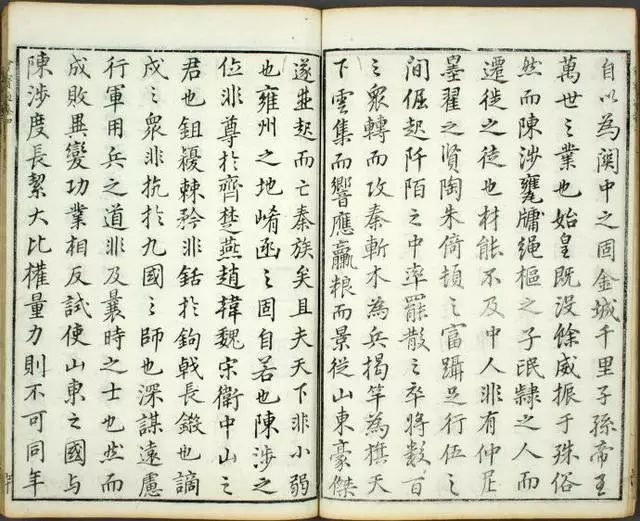 自以為関中之固金城千里子孫帝王
萬世之業也始皇既没餘威振于殊俗
然而陳涉甕牖繩樞之子氓隸之人而
遷徙之徒也材能不及中人非有仲尼
墨翟之賢陶朱倚頓之富躡足行伍之
間倔起阡陌之中率罷散之卒將数百
之衆轉而攻秦斬木為兵揭竿為旗天
下雲集而響應贏粮而景從山東豪傑
遂並起而亡秦族矣且夫天下非小弱
也雍州之地崤函之固自若也陳涉之
位非尊於齊楚燕趙韓魏宋衛中山之
君也鉏櫌棘矜非銛於鉤戟長鎩也謫
戍之衆非抗於九國之師也深謀遠慮
行軍用兵之道非及曩時之士也然而
成敗異變功業相反試使山東之國与
陳涉度長絜大比權量力則不可同年